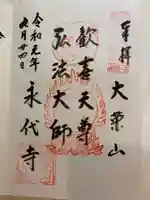 奉拝
大栄山
歓喜天尊
弘法大師
永代寺
令和元年
九月廿四日